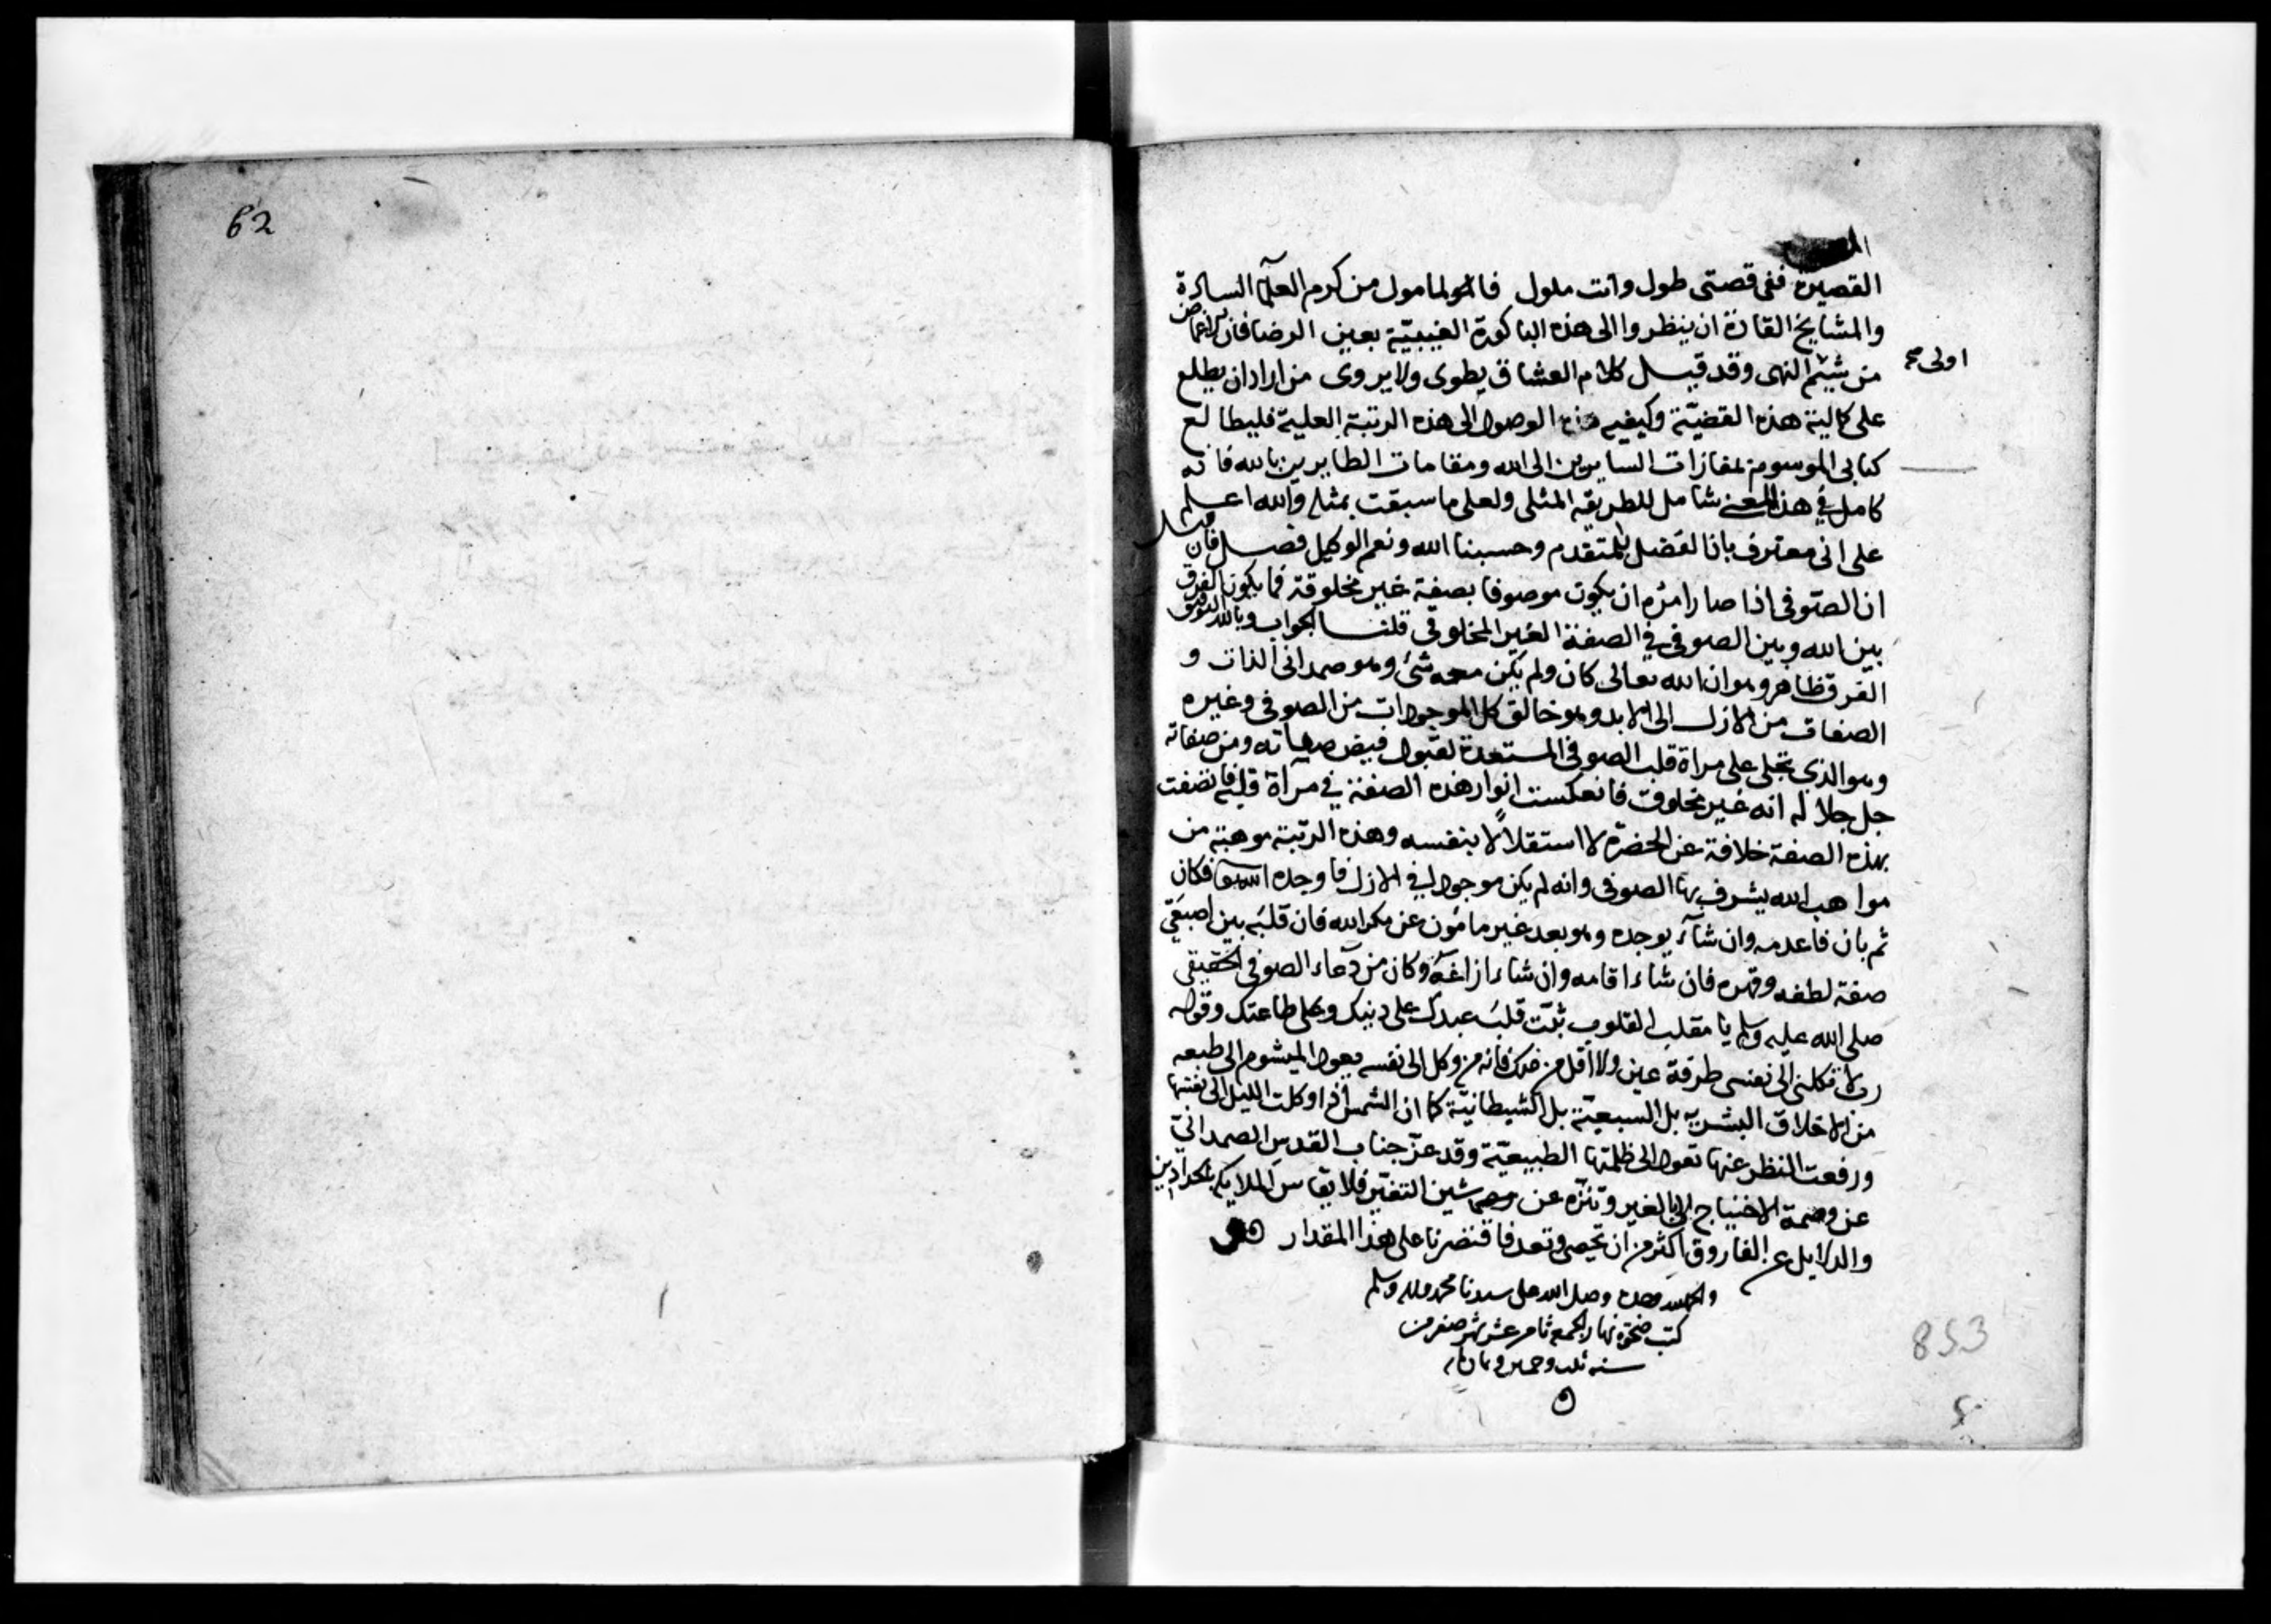 القصيرة ففى قصتى طول وانت ملول فالمامول من كرم العلمآ السادة
والمشايخ القادة ان ينظروا الى هذه الباكورة الغيبيّة بعين الرضا فان الاغماض
اولى صح
من شيم النهى وقد قيل كلام العشاق يطوى ولا يروى من اراد ان يطلع
على كمالية هذه القضيّة وكيفيه الوصول الى هذه الرتبة العلية فليطالع
كتابى الموسوم بمفازات السايرين الى الله ومقامات الطايرين بالله فانه
كامل في هذا المعنى شامل للطريقه المثلى ولعلى ما سبقت بمثله والله اعلم
على انى معترف بان الفضل للمتقدم وحسبنا الله ونعم الوكيل فصل فان قيل
ان الصوفى اذا صار امره ان يكون موصوفا بصفة غير مخلوقة فما يكون الفرق
بين الله وبين الصوفى في الصفة الغير المخلوقى قلنا الجواب وبالله التوفيق
الفرق ظاهر وهو ان الله تعالى كان ولم يكن معه شئ وهو صمدانى الذات و
الصفات من الازل الى الابد وهو خالق كل الموجودات من الصوفى وغيره
وهو الذى تجلى على مراة قلب الصوفى المستعدة لقبول فيض صفاته ومن صفاته
جل جلاله انه غير مخلوق فانعكست انوار هذه الصفة في مرآة قلبه فاتصفت
بهذه الصفة خلافة عن الحضرة لا استقلالا بنفسه وهذه الرتبة موهبة من
مواهب الله يشرف بها الصوفى وانه لم يكن موجودا في الازل فاوجده الله فكان
ثم بان فاعدمه وان شآء يوجده وهو بعد غير مامون عن مكر الله فان قلبه بين اصبعَيّ
صفة لطفه وقهره فان شاء اقامه وان شاء ازاغه وكان من دعاء الصوفى الحقيقى
صلى الله عليه وسلم يا مقلب القلوب ثبّت قلب عبدك على دينك وعلى طاعتك وقوله
رب لا تكلنى الى نفسى طرفة عين ولا اقل من ذلك فانه من وكل الى نفسه يعود الميشوم الى طبعه
من الاخلاق البشريه بل السبعيّة بل الشيطانيّة كما ان الشمس اذا وكلت الليل الى نفسها
ورفعت النظر عنها تعود الى ظلمتها الطبيعيّة وقد عزّ جناب القدس الصمدانىّ
عن وصمة الاحتياج الى الغير وتنزّه عن شين التغيّر فلا يقاس الملايكه بالحدادين
والدلايل عن الفاروق اكثر من ان تحصى وتعد فاقتصرنا على هذا المقدار
والحمد لله وحده وصلى الله على سيدنا محمد وآله وسلم
كتب ضحوة نهار الجمعه ثامن عشر شهر صفر من
سنه ثلث وخمسين وثمان مايه
853
62